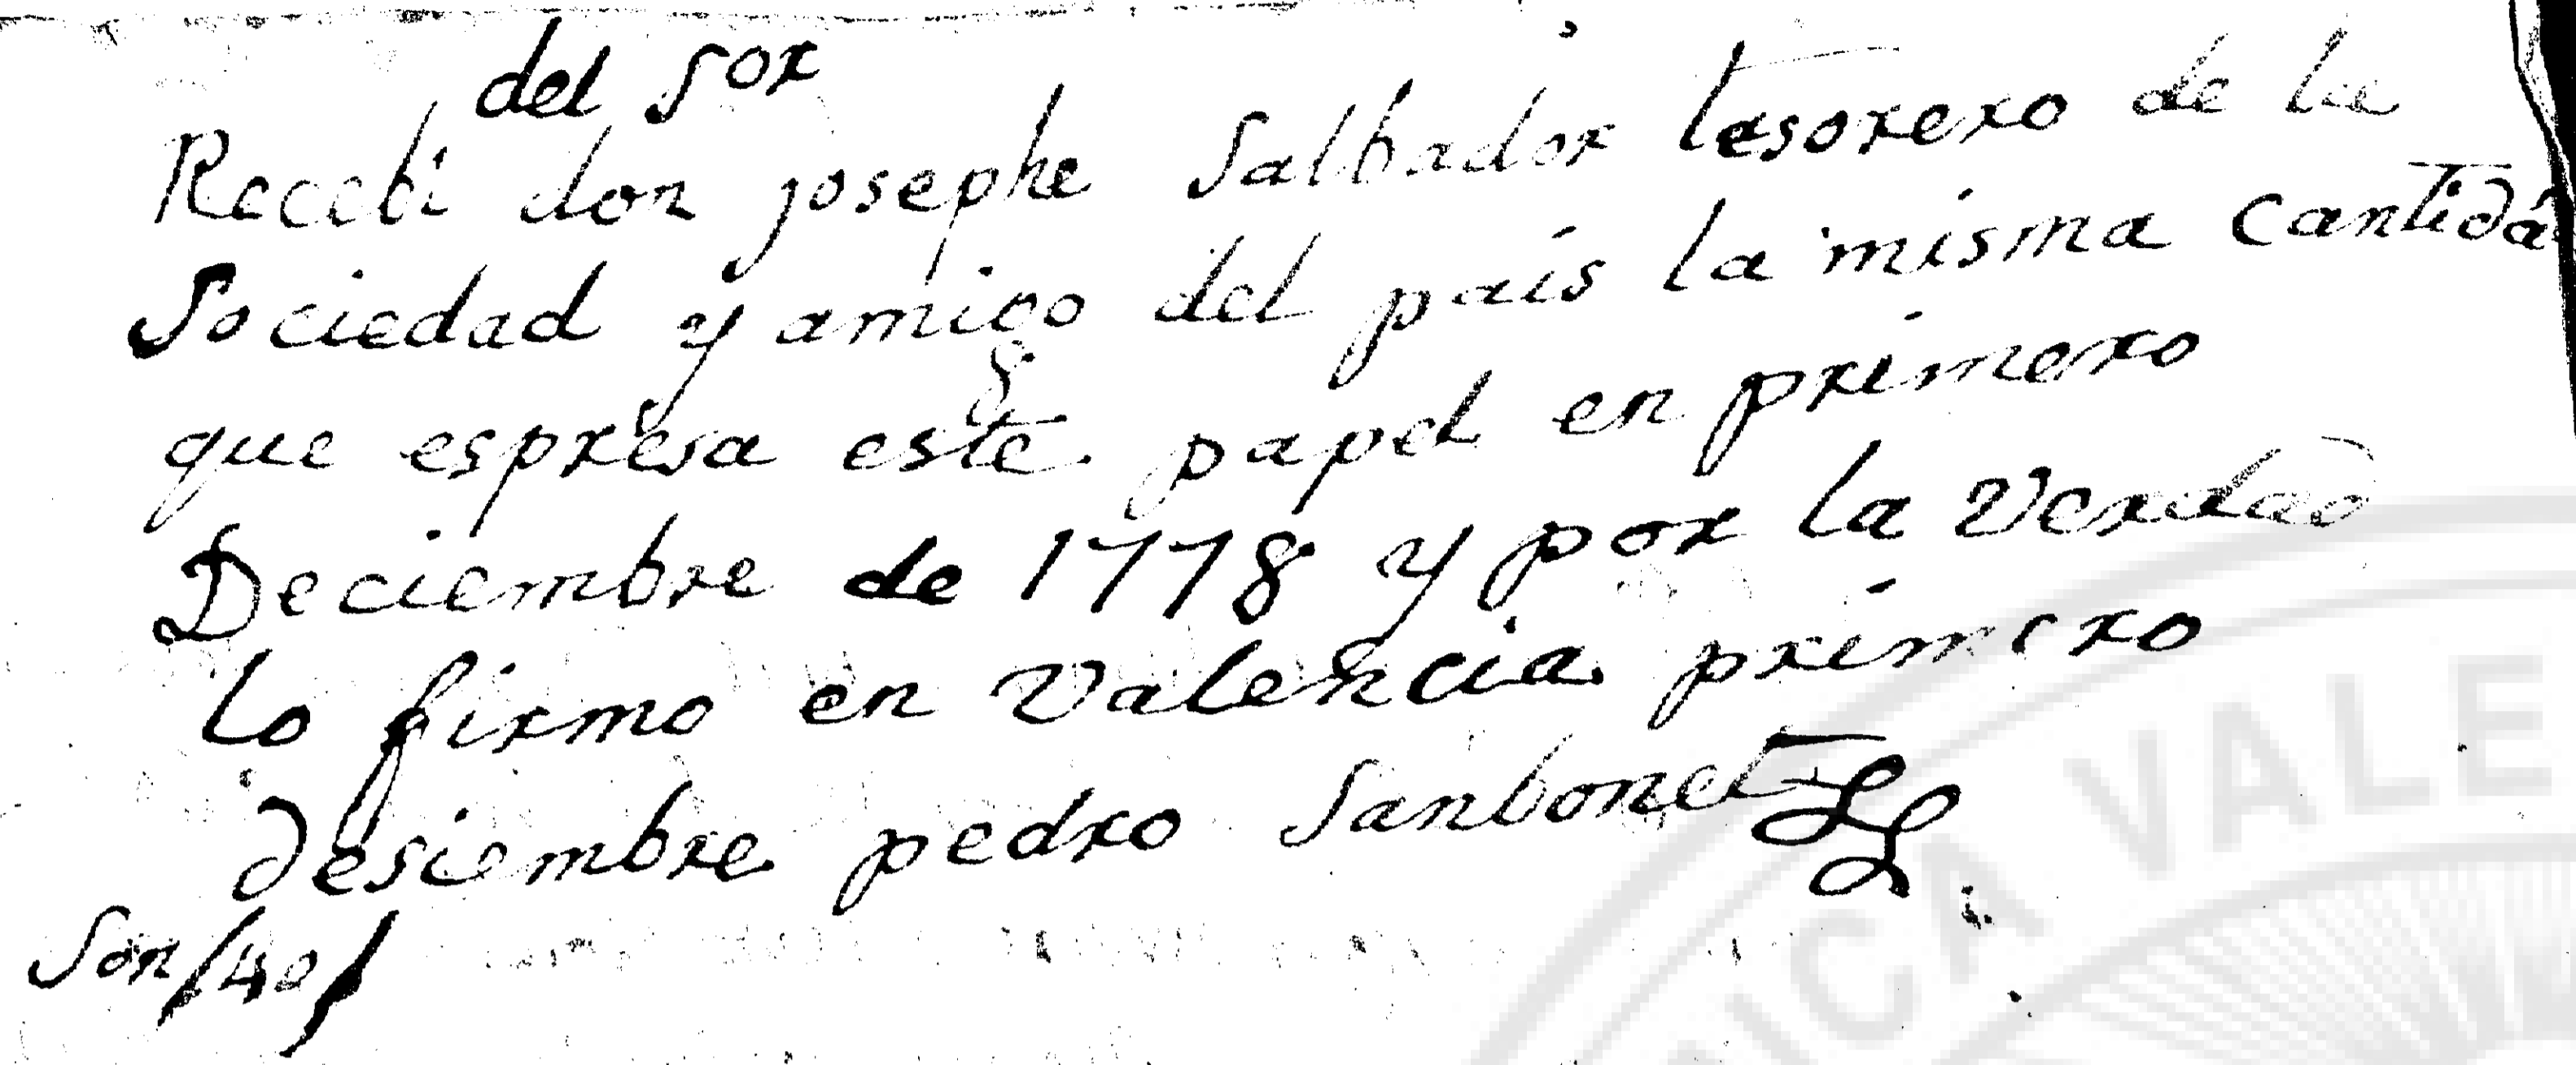 del Sor
Recebi don josephe Salbador tesorero de la
Sociedad y amigo del pais la misma cantida
que espresa este papel en primero
Deciembre de 1778 y por la verdad
lo firmo en Valencia primero
desiembre pedro Sanbonet
Son/40/
ICA VALE